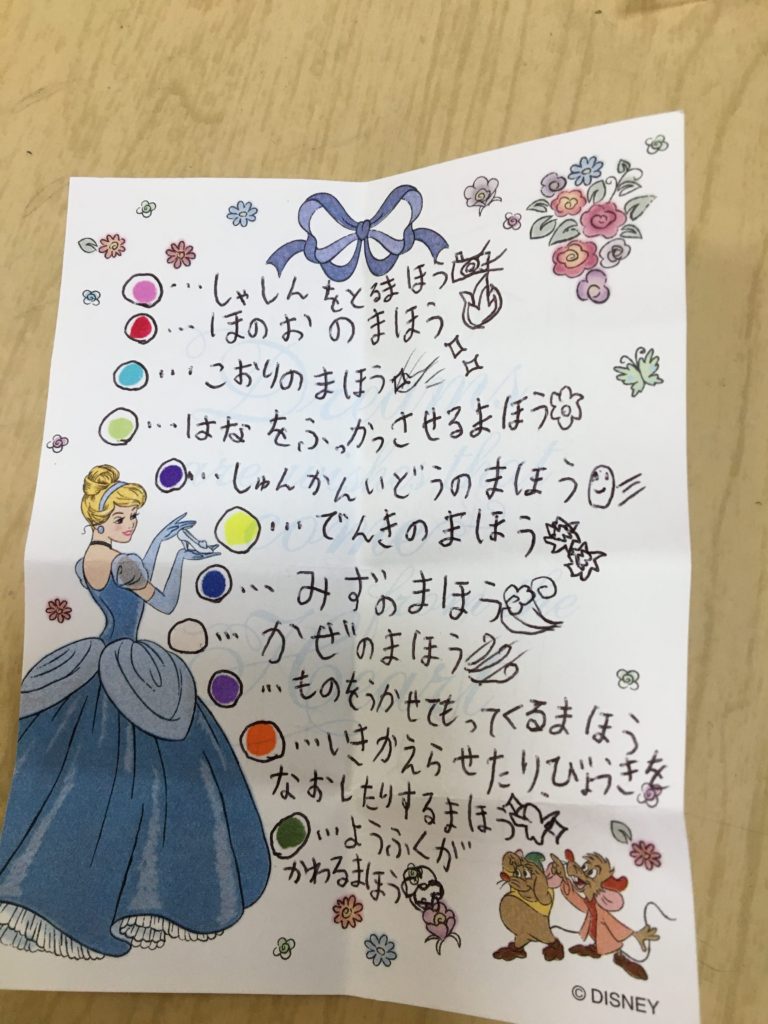 …しゃしんをとるまほう
…ほのおのまほう
…こおりのまほう
…はなをふっかつさせるまほう
…しゅんかんいどうのまほう
…でんきのまほう
…みずのまほう
…かぜのまほう
…ものをうかせてもってくるまほう
…いきかえらせたり、びょうきを
なおしたりするまほう
…ようふくが
かわるまほう
Dreams
are wishes that
come
the
Heart
© DISNEY